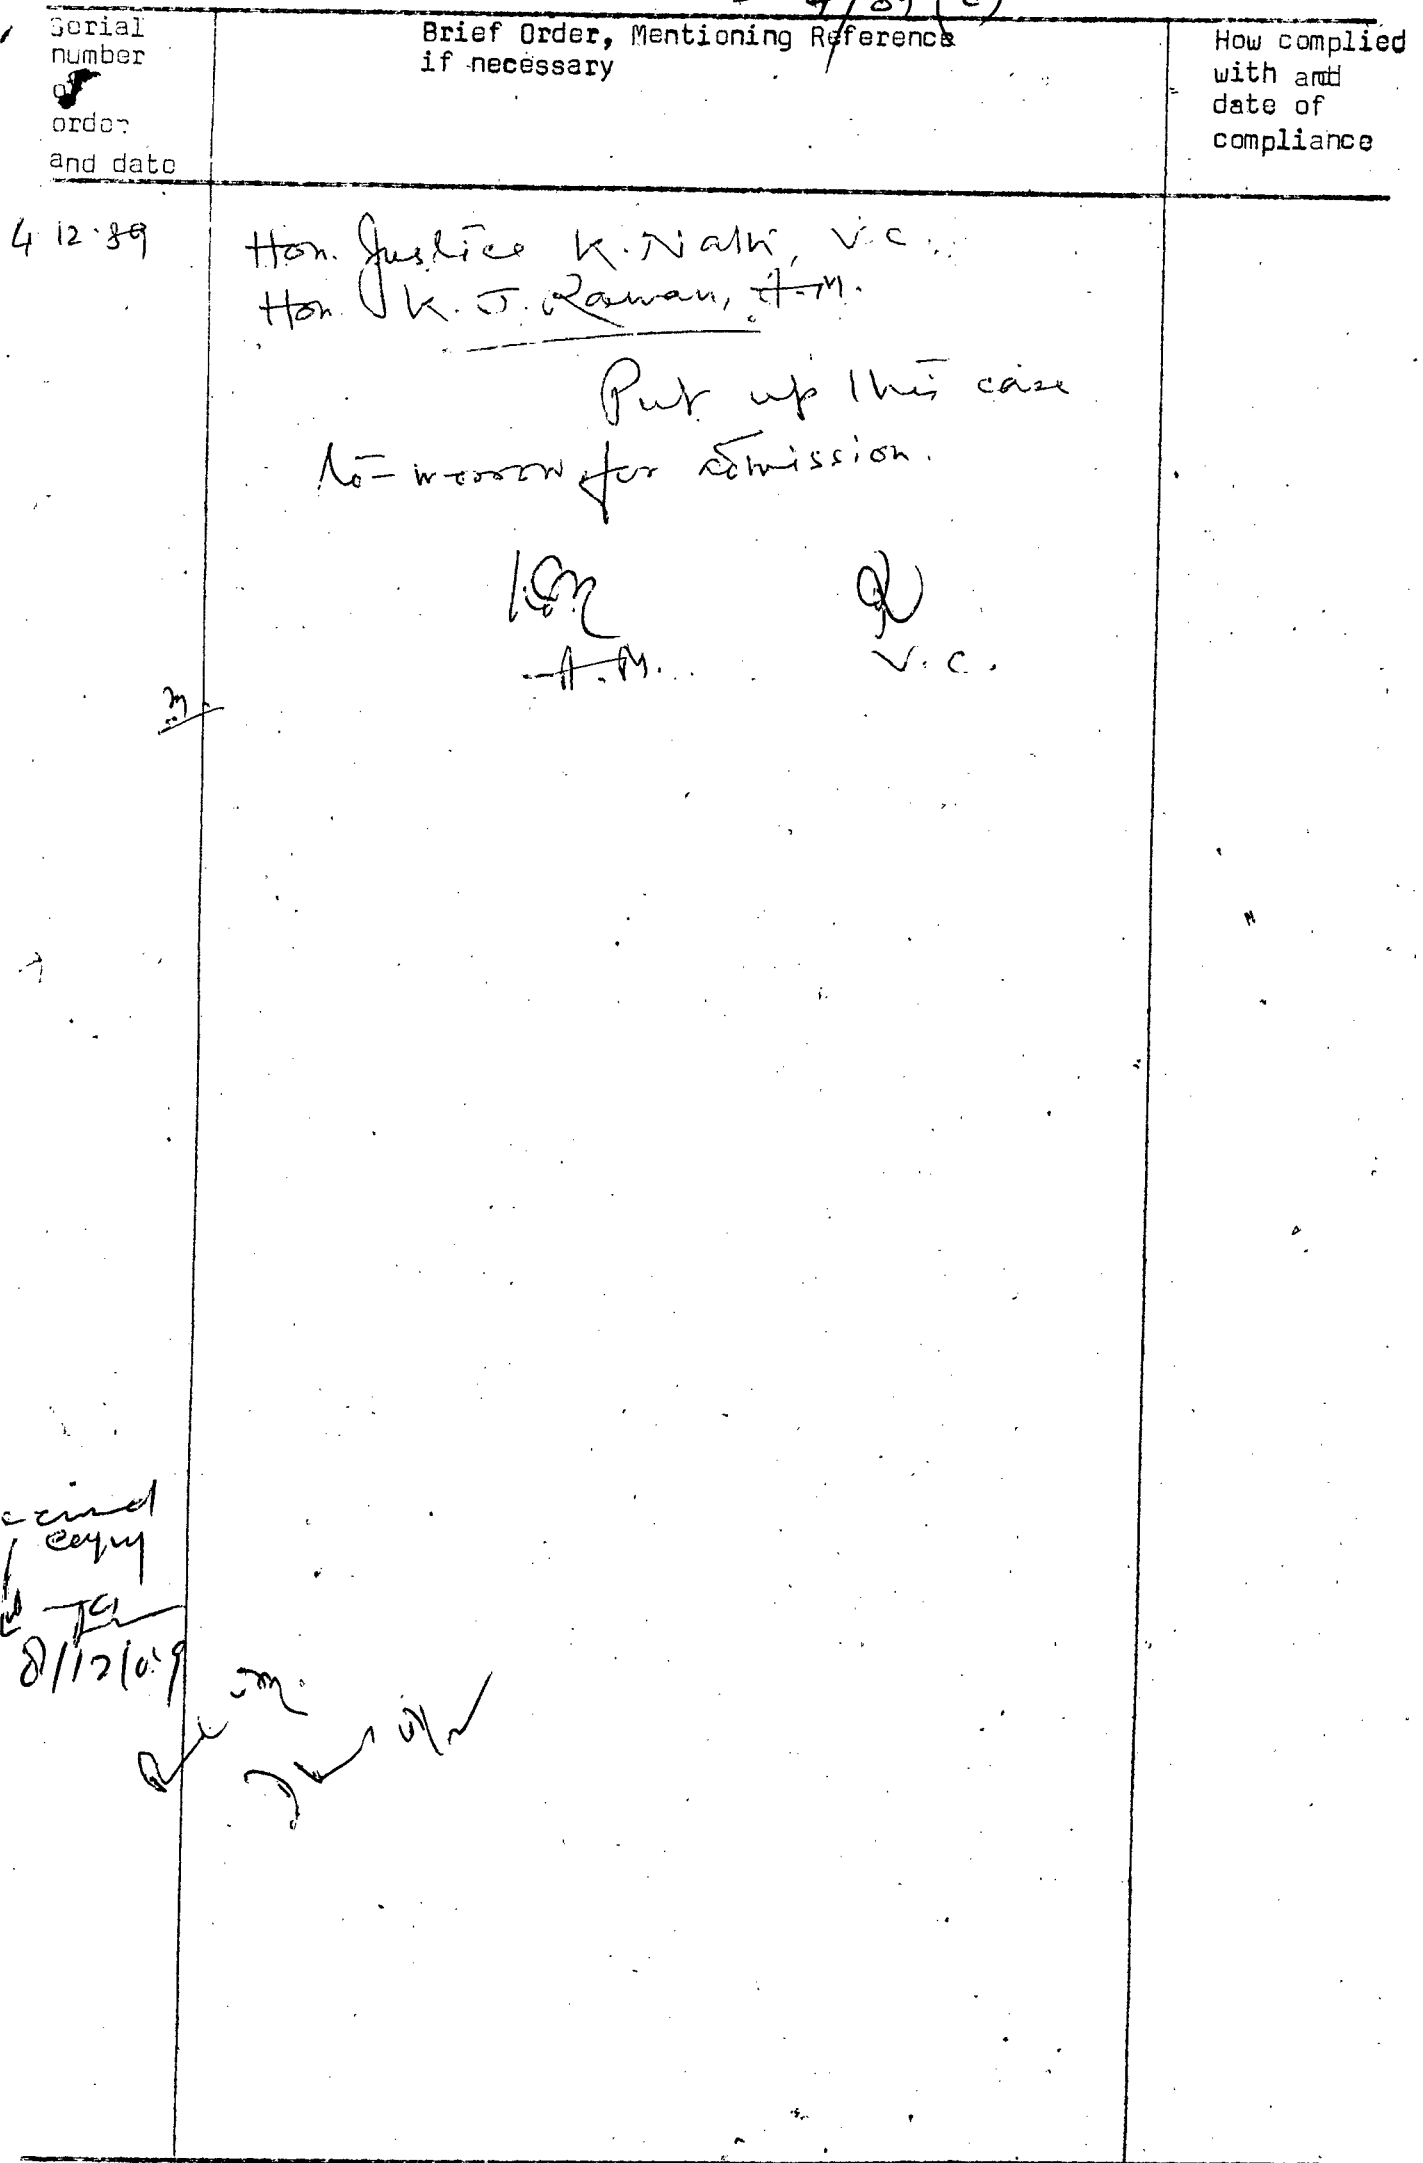 Serial
number
of
order
and date
Brief Order, Mentioning Reference
if necessary
How complied
with and
date of
compliance
4.12.89
Hon. Justice K. Nath, V.C.
Hon. K. J. Raman, A.M.
Put up this case
to-morrow for admission.
A.M.
V.C.
copy